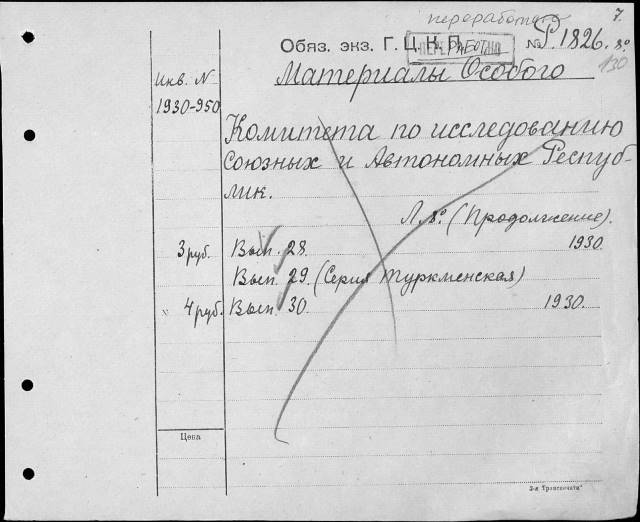 переработано 7.
Обяз. экз. Г. Ц. К. П. № Р. 1826. 8º
ПЕРЕРАБОТАНО
130
Инв. N Материалы Особого
1930-950
Комитета по исследованию
Союзных и Автономных Респуб-
лик.
Л. 8º. (Продолжение).
3 руб. Вып. 28. 1930.
Вып. 29. (Серия туркменская)
" 4 руб. Вып. 30. 1930.
Цена
3-я Транспечати"